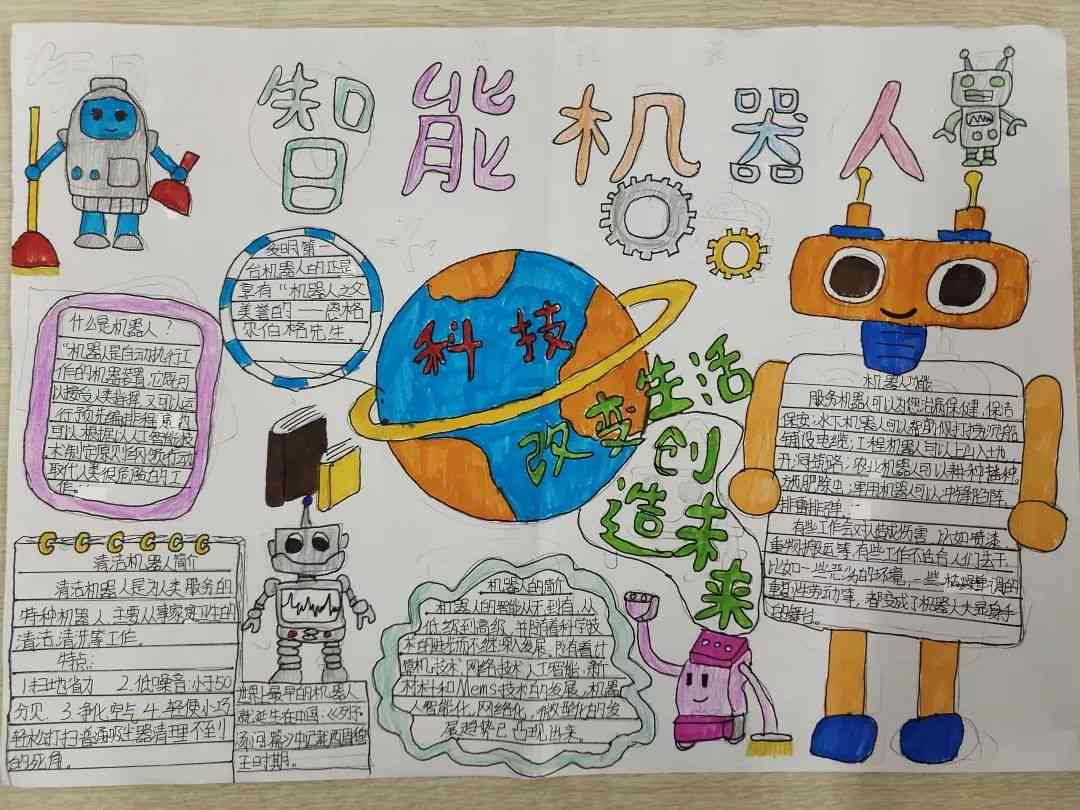 智能机器人
发明第
台机器人的正是
享有“机器人之父
美誉的——恩格
尔伯格先生。
科技
改变生活
创
造未
来
什么是机器人？
“机器人是自动执行工
作的机器装置,它既可
以接受人类指挥,又可以运
行预先编排程序,也
可以根据以人工智能技
术制定原则纲领行动
取代人类很危险的工
作。
机器人功能
服务机器人可以为您治病保健、保洁
保安;水下机器人可以帮助你打捞沉船
铺设电缆;工程机器人可以上山入地
开洞筑路;农业机器人可以耕种播种,
施肥除虫;军用机器人可以冲锋陷阵,
排雷排弹…
有些工作会对人造成伤害,比如喷漆
重物搬运等,有些工作不适合人们去干,
比如一些恶劣的环境,一些枯燥单调的
重复性劳动等,都变成了机器人大显身手
的舞台。
清洁机器人简介
清洁机器人是为人类服务的
特种机器人,主要从事家庭卫生的
清洁,清洗等工作。
特点:
1.扫地省力 2.低噪音:小于50
分贝 3.净化空气 4.轻便小巧
轻松打扫普通吸尘器清理不到
的死角。
世界上最早的机器人
就诞生在中国:《列子
汤问篇》中记载西周穆
王时期。
机器人的简介
机器人的智能从无到有,从
低级到高级,并随着科学技
术的进步而不断深入发展,随着计
算机技术,网络技术,人工智能,新
材料和Mems技术的发展,机器
人智能化,网络化,微型化的发
展趋势已凸现出来。